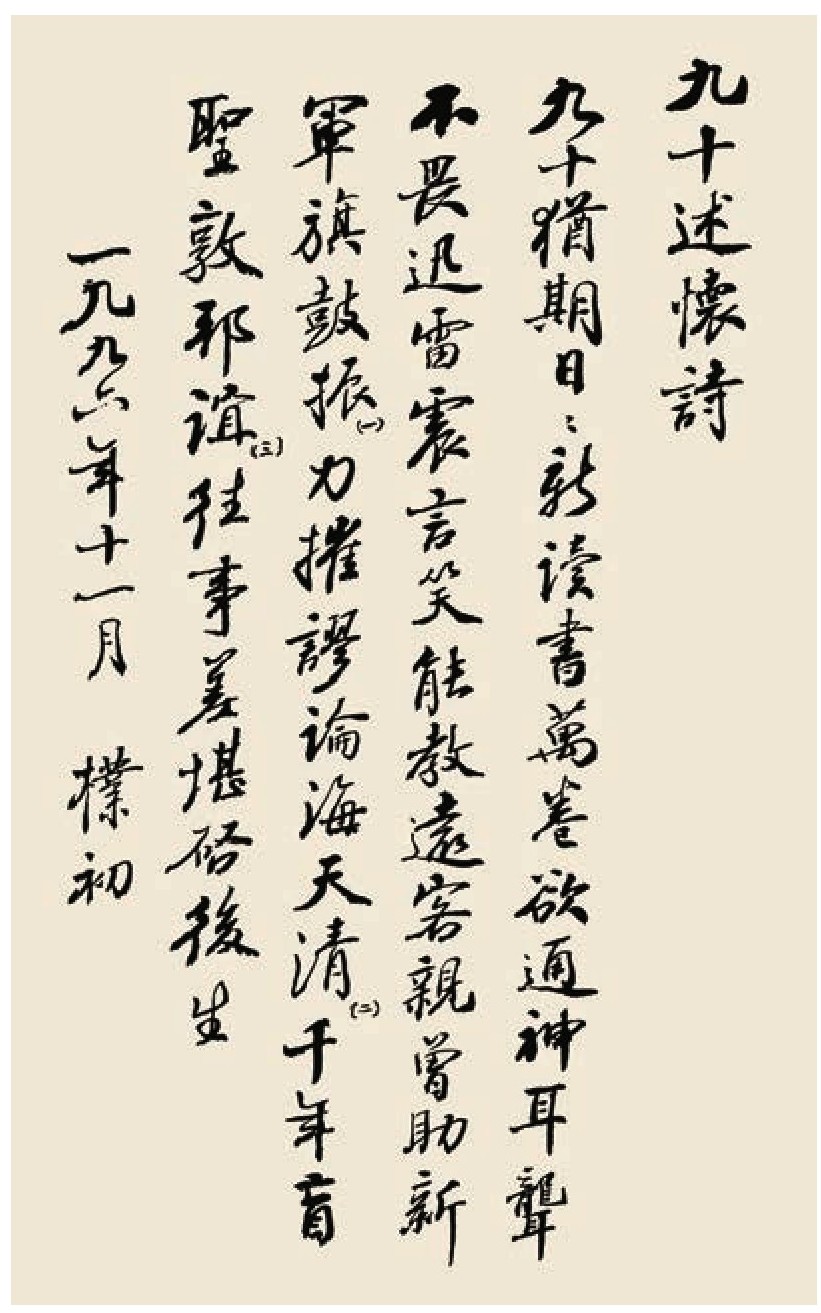 九十述懷詩
九十猶期日〻新讀書萬卷欲通神耳聾
不畏迅雷震言笑能教遠客親曾助新
軍旗鼓振(一)力摧謬論海天清(二)千年盲
聖敦邦誼(三)往事差堪啓後生
一九九六年十一月 樸初